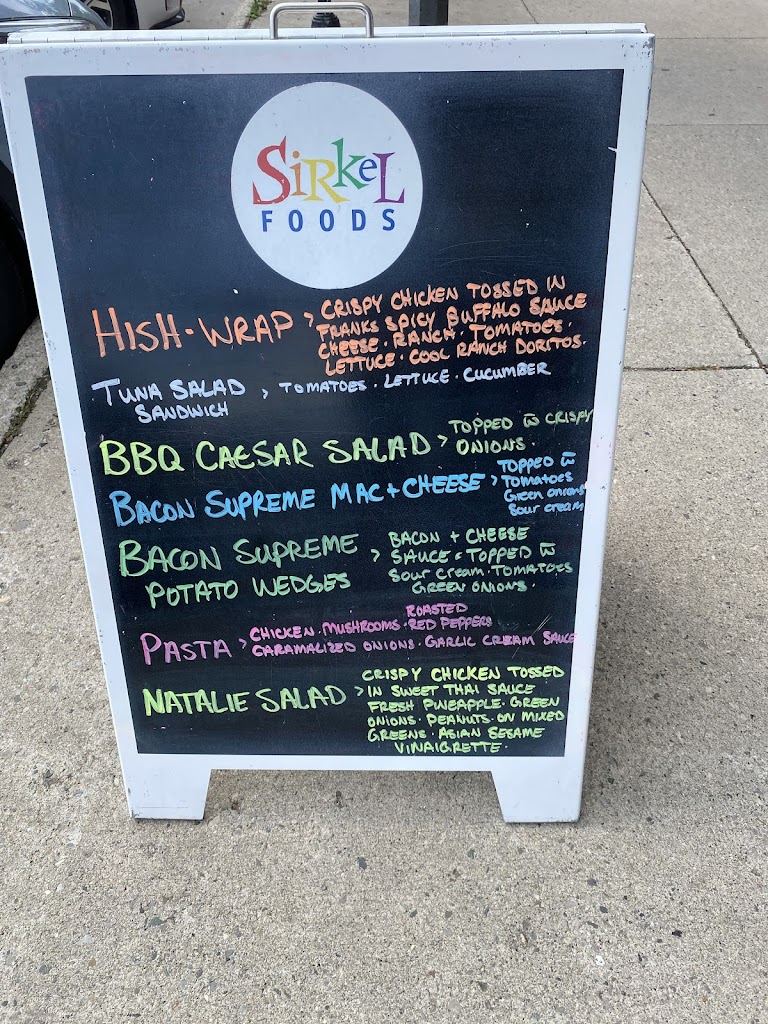 SiRKeL
FOODS
HISH·WRAP > CRISPY CHICKEN TOSSED IN
FRANKS SPICY BUFFALO SAUCE
CHEESE·RANCH·TOMATOES·
LETTUCE·COOL RANCH DORITOS·
TUNA SALAD
SANDWICH > TOMATOES·LETTUCE·CUCUMBER
BBQ CAESAR SALAD > TOPPED W CRISPY
ONIONS·
BACON SUPREME MAC+CHEESE > TOPPED W
TOMATOES
Green onions
Sour cream
BACON SUPREME
POTATO WEDGES > BACON + CHEESE
SAUCE·TOPPED W
Sour cream·TOMATOES
GREEN ONIONS·
PASTA > CHICKEN·MUSHROOMS·ROASTED RED PEPPERS
CARAMALIZED ONIONS·GARLIC CREAM SAUCE
NATALIE SALAD > CRISPY CHICKEN TOSSED
IN SWEET THAI SAUCE
FRESH PINEAPPLE·GREEN
ONIONS·PEANUTS·ON MIXED
GREENS·ASIAN SESAME
VINAIGRETTE·